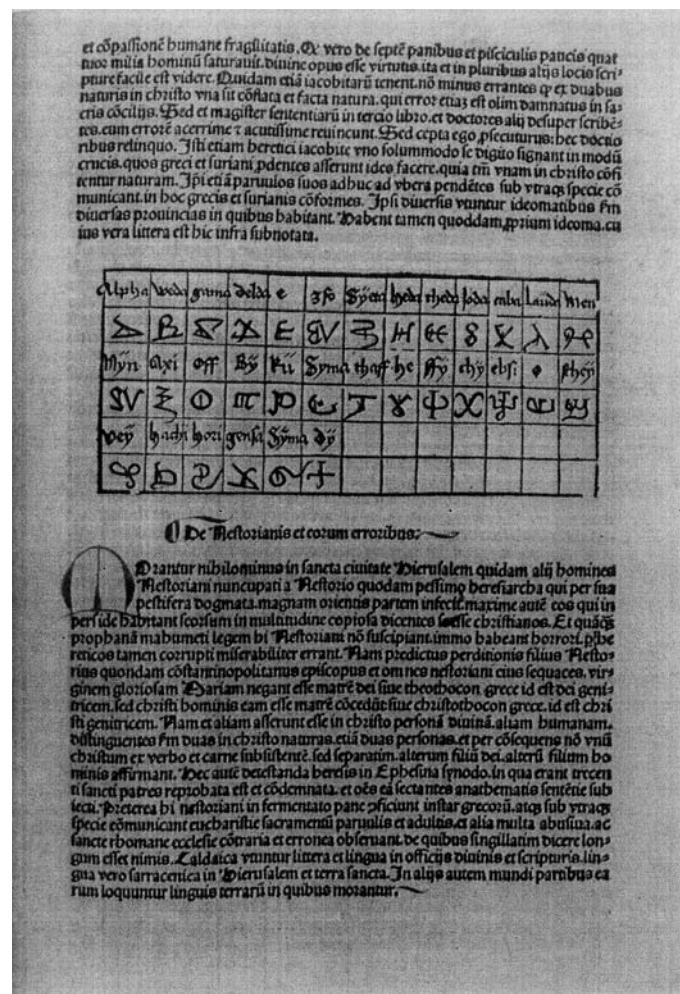 et cõpassionẽ humane fragilitatis. Ex vero de septẽ panibus et pisciculis paucis quat
tuor milia hominũ saturauit. diuine opus esse virtutis. ita et in pluribus alijs locis scri-
pture facile est videre. Quidam etiã iacobitarũ tenent. nõ minus errantes ꝙ ex duabus
naturis in christo vna sit cõflata et facta natura. qui error etiaȝ est olim damnatus in sa-
cris cõcilijs. Sed et magister sententiarũ in tercio libro. et doctores alij desuper scribẽ-
tes. eum errorẽ acerrime ⁊ acutissime reuincunt. Sed cepta ego ꝓsecuturus: hec doctio
ribus relinquo. Isti etiam heretici iacobite vno solummodo se digito signant in modũ
crucis. quos greci et suriani ꝓdentes asserunt ideo facere. quia tm̃ vnam in christo cõfi
tentur naturam. Ipi etiã paruulos suos adhuc ad vbera pendẽtes sub vtraqȝ specie cõ
municant. in hoc grecis et surianis cõformes. Ipsi diuersis vtuntur ideomatibus fm̃
diuersas prouincias in quibus habitant. Habent tamen quoddam ꝓprium ideoma. cu
ius vera littera est hic infra subnotata.
Alpha weda gama delda e zso heda theda Joda
Mÿn Axi off Bÿ Sÿma he chÿ ebsi o
hori gensa Sÿma dÿ
De Nestorianis et eorum erroribus:
Orantur nihilominus in sancta ciuitate Hierusalem quidam alij homines
Nestoriani nuncupati a Nestorio quodam pessimo heresiarcha qui per sua
pestifera dogmata. magnam orientis partem infecit. maxime autẽ eos qui in
perside habitant seorsum in multitudine copiosa dicentes sese christianos. Et quãqȝ
prophanã mahumeti legem hi Nestoriani nõ suscipiant. immo habeant horrori. ꝓ he
reticos tamen corrupti miserabiliter errant. Nam predictus perditionis filius Nesto-
rius quondam cõstantinopolitanus episcopus et omnes nestoriani eius sequaces. vir-
ginem gloriosam Mariam negant esse matrẽ dei siue theothocon grece id est dei geni-
tricem. sed christi hominis eam esse matrẽ cõcedũt siue christothocon grece. id est chri
sti genitricem. Nam et aliam asserunt esse in christo personã diuinã. aliam humanam.
distinguentes fm̃ duas in christo naturas. etiã duas personas. et per cõsequens nõ vnũ
christum ex verbo et carne subsistentẽ. sed separatim. alterum filiũ dei. alterũ filium ho
minis affirmant. Hec autẽ detestanda heresis in Ephesina synodo. in qua erant trecen
ti sancti patres reprobata est et cõdemnata. et oẽs eã sectantes anathematis sentẽtie sub
iecti. Preterea hi nestoriani in fermentato pane ꝯficiunt instar grecorũ. atqȝ sub vtraqȝ
specie cõmunicant eucharistie sacramentũ paruulis et adultis. et alia multa abusiua. ac
sancte rhomane ecclesie cõtraria et erronea obseruant. de quibus singillatim dicere lon-
gum esset nimis. Caldaica vtuntur littera et lingua in officijs diuinis et scripturis. lin-
gua vero sarracenica in Hierusalem et terra sancta. In alijs autem mundi partibus ea
rum loquuntur linguis terrarũ in quibus morantur.